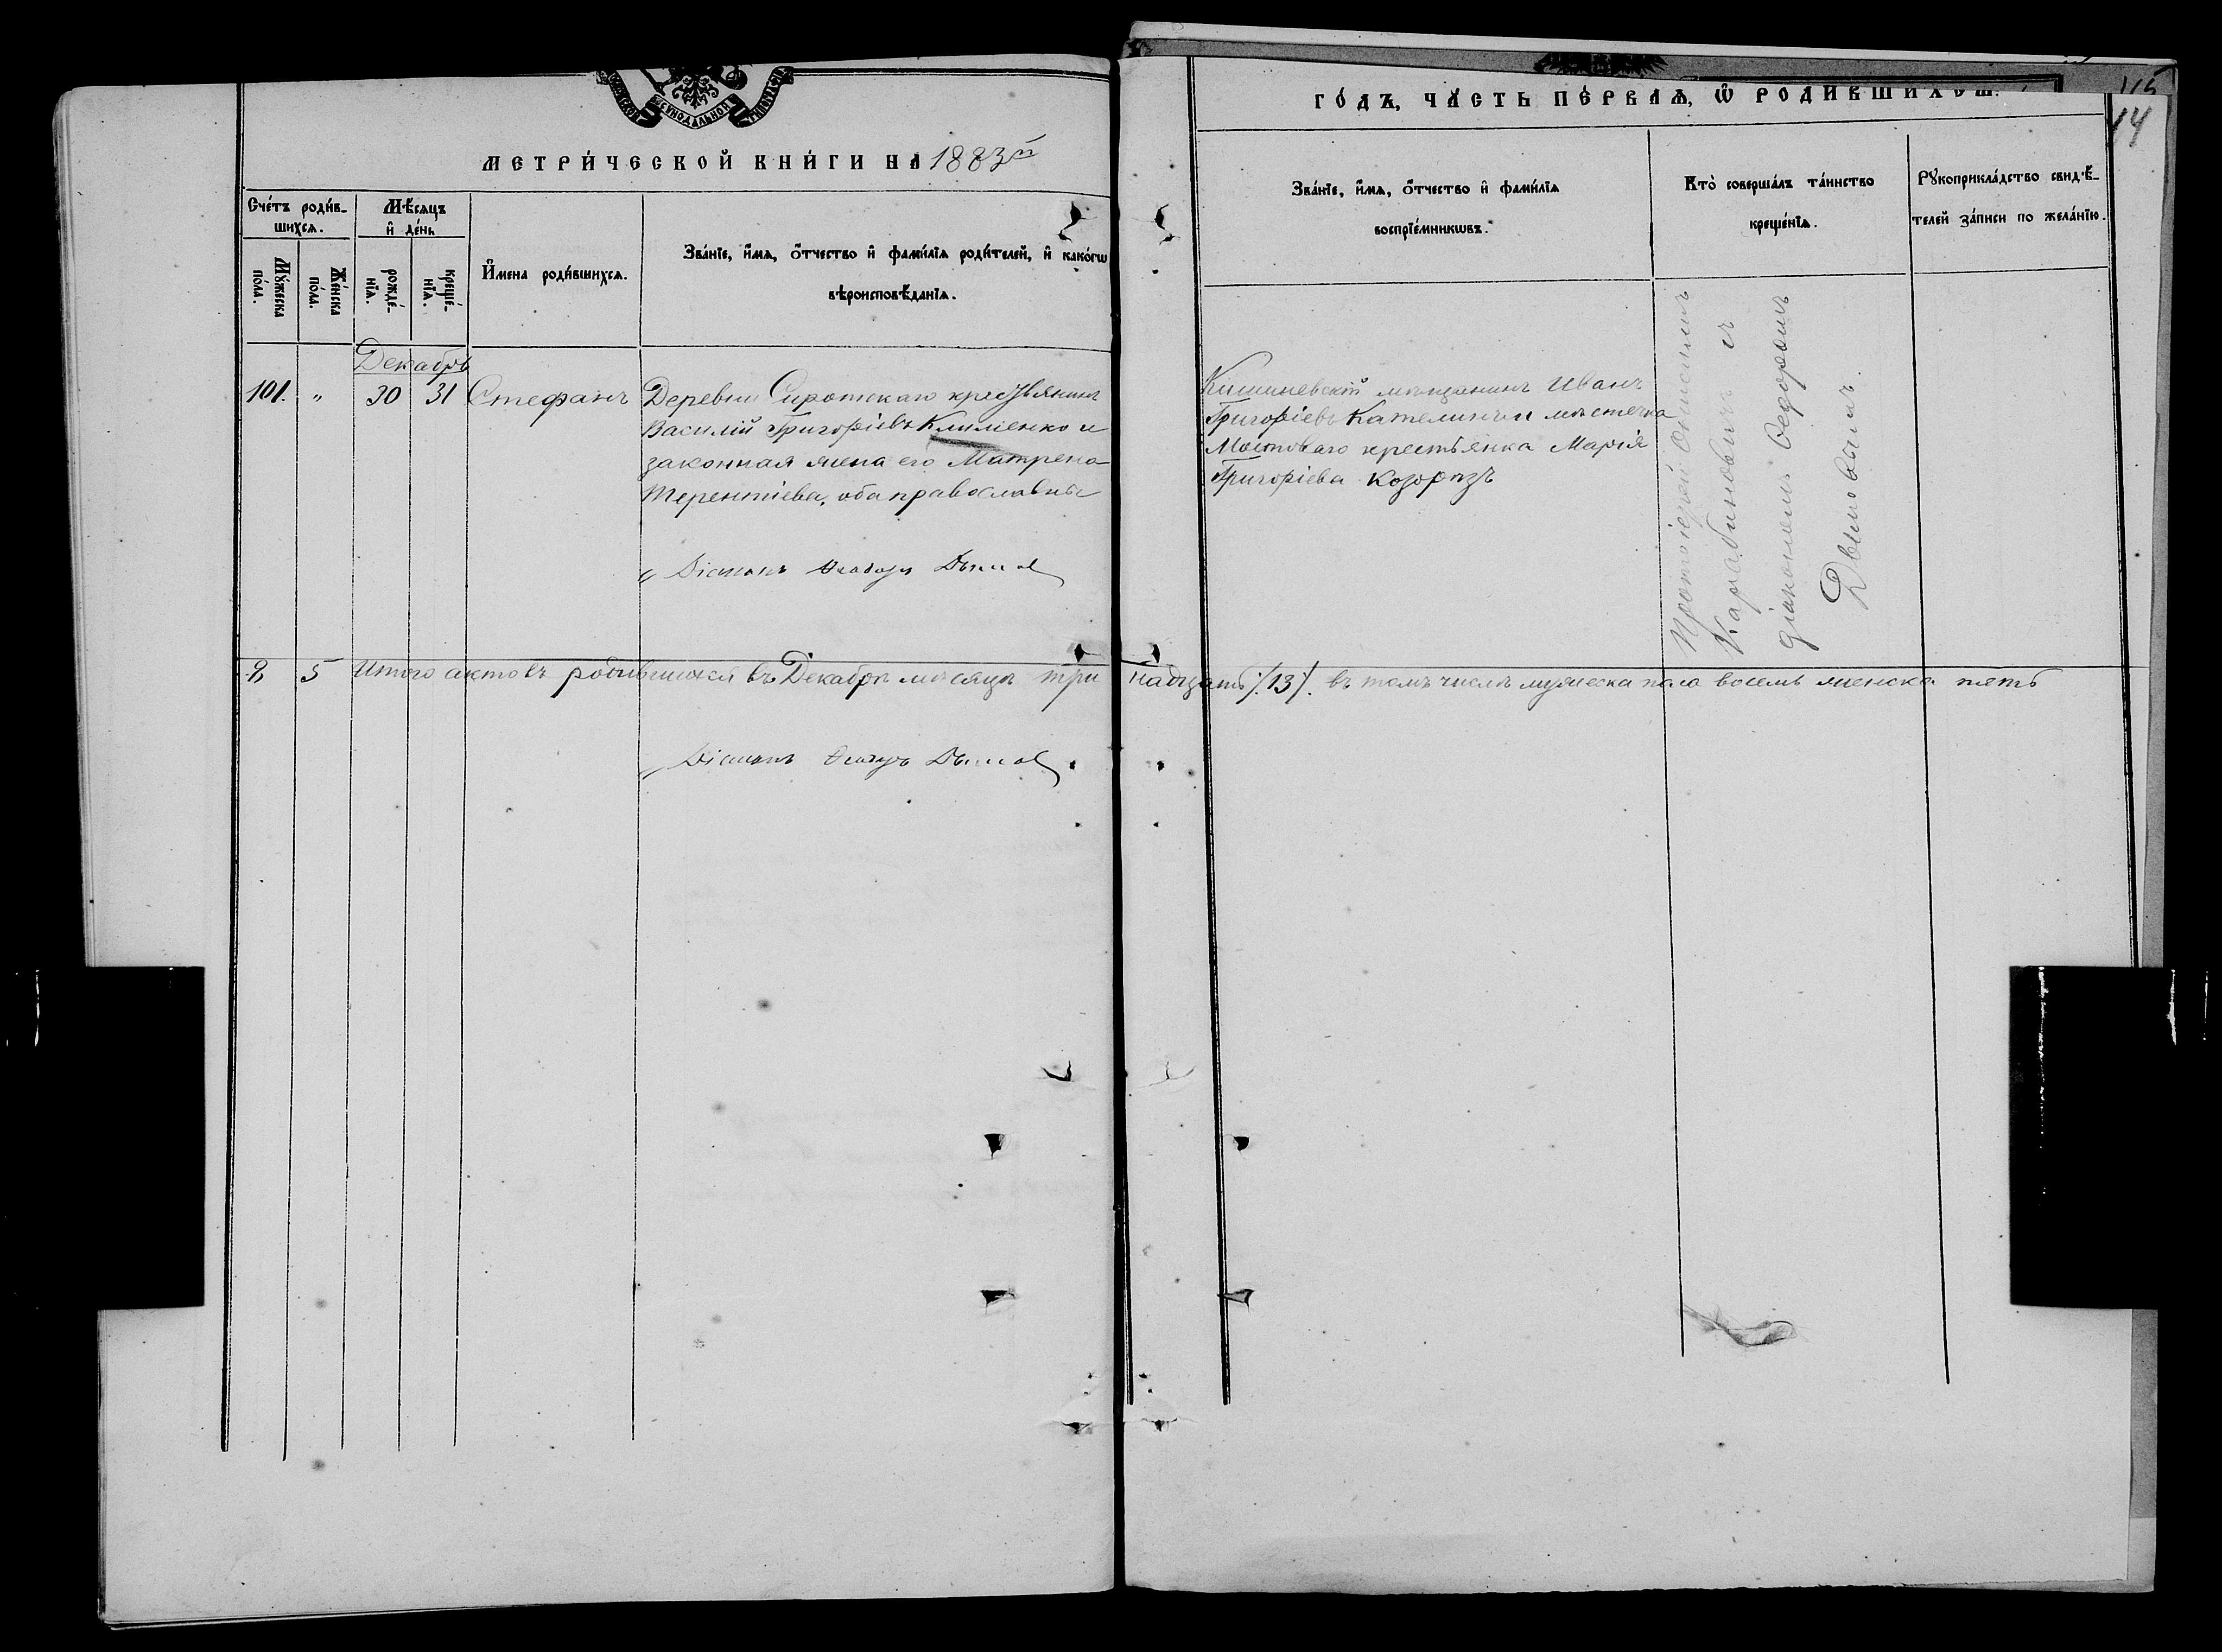 МЕТРИ́ЧЕСКОЙ КНИ́ГИ НА 1883й
ГО́ДЪ, ЧА́СТЬ ПЕ́РВАѦ, Ѡ҆ РОДИ́ВШИХСѦ.
115
114
Сче́тъ роди́в-
шихсѧ.
Мѣ́сѧцъ
и҆ де́нь
Мꙋ́жеска
по́ла.
Же́нска
по́ла.
рожде́-
нїѧ.
креще́-
нїѧ.
И҆мена роди́вшихсѧ.
Зва́нїе, и҆́мѧ, ѻ҆́тчество и҆ фами́лїѧ роди́телей, и҆ како́гѡ
вѣроисповѣ́данїѧ.
Зва́нїе, и҆́мѧ, ѻ҆́тчество и҆ фами́лїѧ
воспрїе́мникѡвъ.
Кто̀ соверша́лъ та́инство
креще́нїѧ.
Рꙋкоприкла́дство свидѣ́-
телей за́писи по жела́нїю.
Декабрь
101. " 30 31 Стефанъ
Деревни Сиротскаго крестьянинъ
Василій Григоріевъ Клименко и
законная жена его Матрена
Терентіева, оба православные
Діаконъ Ѳеодоръ
Кишиневскій мѣщанинъ Иванъ
Григоріевъ мѣстечка
Мостоваго крестьянка Марія
Григоріева Козорѣзъ
Протоіерей
Карабиновичъ съ
діакономъ Ѳедоромъ
8 5 Итого актовъ родившихся въ Декабрѣ мѣсяцѣ три надцать /:13:/. въ томъ числѣ мужеска пола восемь женска пять
Діаконъ Ѳеодоръ